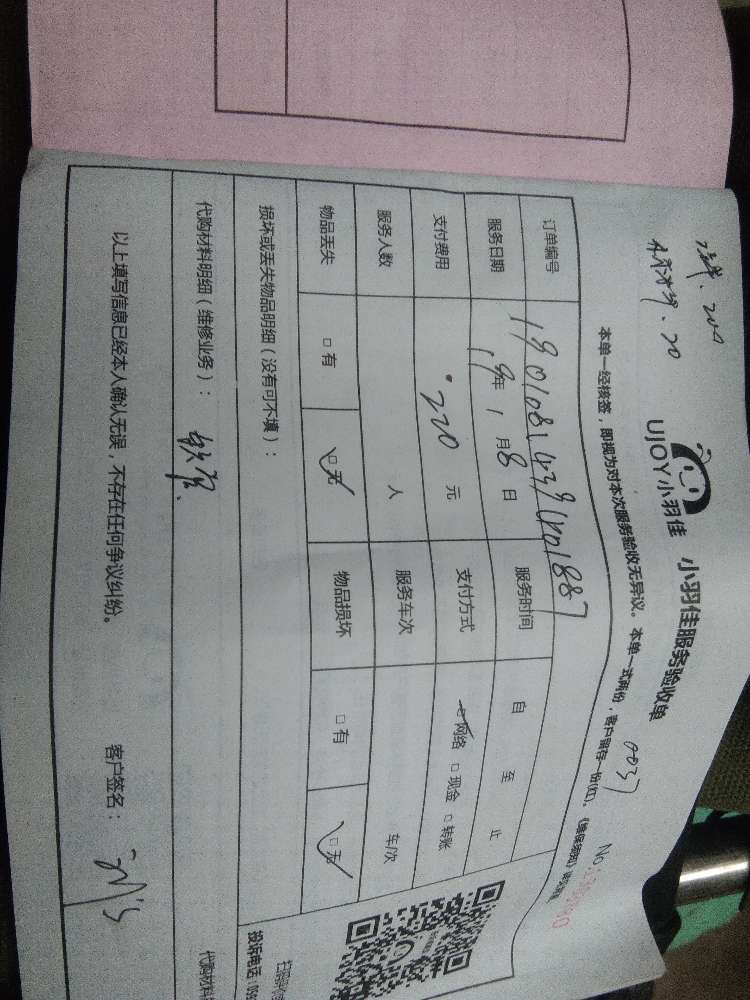 UJOY小羽佳 小羽佳服务验收单
0037
本单一经核签，即视为对本次服务验收无异议。本单一式两份，客户留存一份(红)。
No
订单编号
服务日期 19年 1月 8日 服务时间 自 至 止
支付费用 220 元 支付方式 网络 现金 转账
服务人数 人 服务车次 车/次
物品丢失 有 无 物品损坏 有 无
损坏或丢失物品明细（没有可不填）：
代购材料明细（维修业务）： 软管
投诉电话
代购材料
以上填写信息已经本人确认无误，不存在任何争议纠纷。 客户签名：